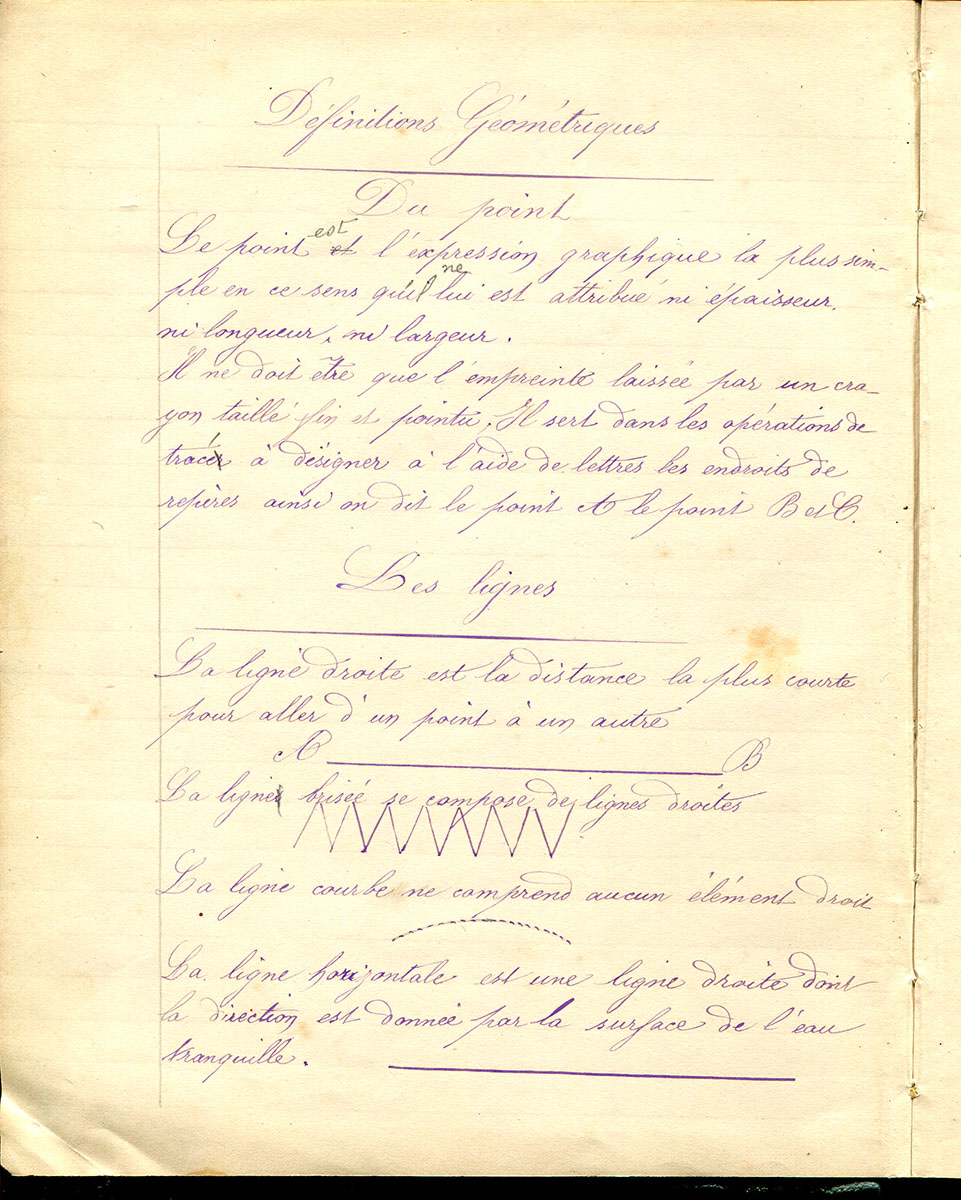 Définitions Géométriques
Du point
Le point est l'éxpression graphique la plus sim-
ple en ce sens qu'il ne lui est attribué ni épaisseur,
ni longueur, ni largeur.
Il ne doit être que l'empreinte laissée par un cra-
yon taillé fin et pointu. Il sert dans les opérations de
tracé à désigner à l'aide de lettres les endroits de
repères ainsi on dit le point A le point B et C.
Les lignes
La ligne droite est la distance la plus courte
pour aller d'un point à un autre
A B
La ligne brisée se compose de lignes droites
La ligne courbe ne comprend aucun élément droit
La ligne horizontale est une ligne droite dont
la direction est donnée par la surface de l'eau
tranquille.